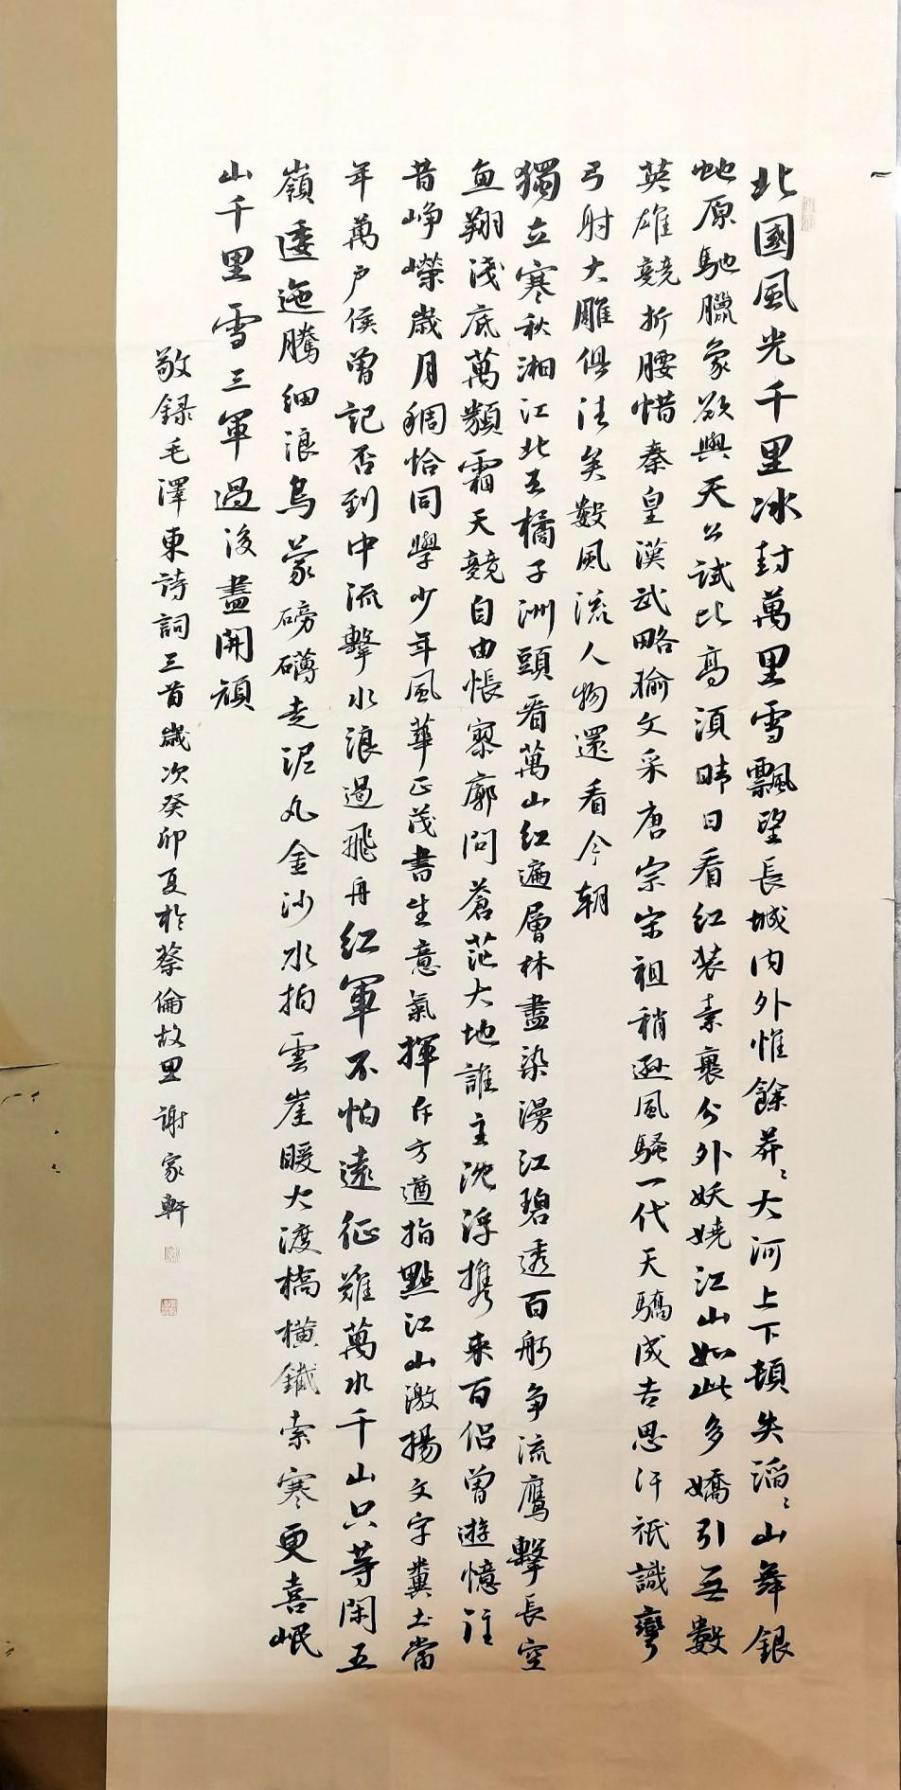 北國風光千里冰封萬里雪飄望長城内外惟餘莽〻大河上下頓失滔〻山舞銀
虵原馳臘象欲與天公試比高須晴日看紅裝素裹分外妖嬈江山如此多嬌引無數
英雄競折腰惜秦皇漢武略输文采唐宗宋祖稍遜風騷一代天驕成吉思汗衹識彎
弓射大雕俱往矣數風流人物還看今朝
獨立寒秋湘江北去橘子洲頭看萬山紅遍層林盡染漫江碧透百舸争流鹰擊長空
鱼翔淺底萬類霜天競自由悵寥廓问蒼茫大地誰主沈浮携来百侣曾遊憶往
昔崢嶸歲月稠恰同學少年風華正茂書生意氣揮斥方遒指點江山激揚文字糞土當
年萬户侯曾記否到中流擊水浪遏飛舟紅軍不怕遠征難萬水千山只等閑五
嶺逶迤騰细浪烏蒙磅礴走泥丸金沙水拍雲崖暖大渡橋横鐵索寒更喜岷
山千里雪三軍過後盡開顔
敬録毛澤東詩詞三首歲次癸卯夏於蔡倫故里謝家軒